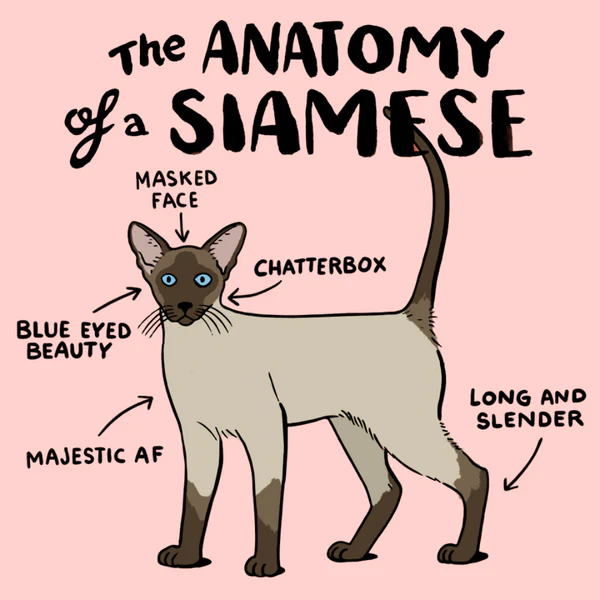 The ANATOMY
of a SIAMESE
MASKED
FACE
CHATTERBOX
BLUE EYED
BEAUTY
MAJESTIC AF
LONG AND
SLENDER